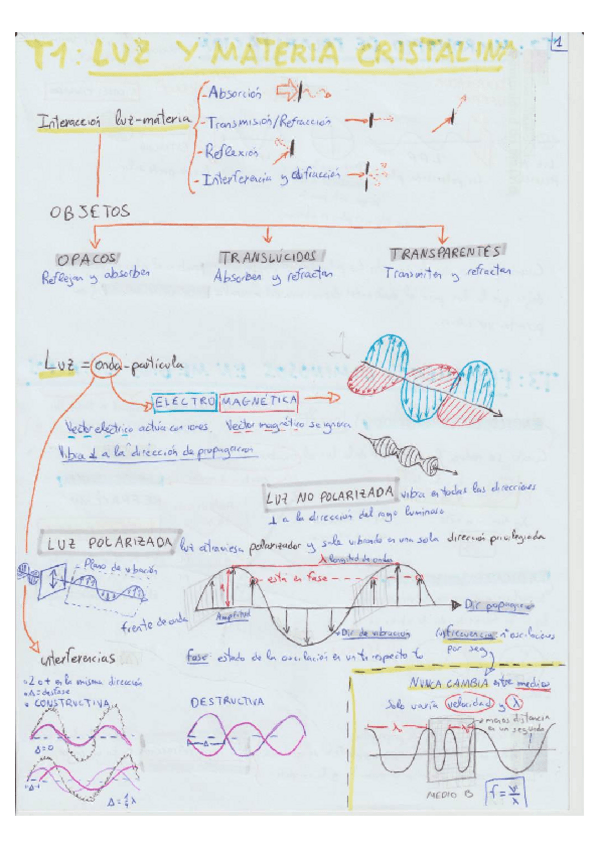 1
T1: LUZ Y MATERIA CRISTALINA
Interacción luz-materia
- Absorción
- Transmisión/Refracción
- Reflexión
- Interferencia y difracción
OBJETOS
OPACOS
Reflejan y absorben
TRANSLÚCIDOS
Absorben y refractan
TRANSPARENTES
Transmiten y refractan
LUZ = onda-partícula
ELECTRO MAGNÉTICA
Vector eléctrico actúa con iones. Vector magnético se ignora
Vibra ⊥ a la dirección de propagación
LUZ NO POLARIZADA vibra en todas las direcciones
⊥ a la dirección del rayo luminoso
LUZ POLARIZADA luz atraviesa polarizador y sale vibrando en una sola dirección privilegiada
Plano de vibración
frente de onda
λ longitud de onda
está en fase
A
Amplitud
Dir propagación
Dir de vibración
fase estado de la oscilación en un t respecto t₀
frecuencia nº oscilaciones
por seg
interferencias
• 2 o + en la misma dirección
• Δ = desfase
• CONSTRUCTIVA
Δ=0
Δ=1/4 λ
DESTRUCTIVA
Δ
NUNCA CAMBIA entre medios
Solo varía velocidad y λ
λ
λ
menos distancia
en un segundo
MEDIO B
f = v/λ